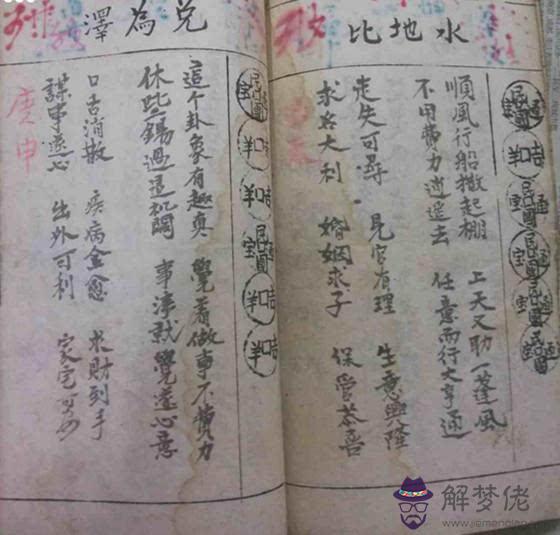 水地比
順風行船撒起棚 上天又助一蓬風
不用費力逍遥去 任意而行大亨通
走失可尋 見官有理 生意興隆
求名大利 婚姻求子 保管恭喜
兌為澤
這个卦象有趣真 覺着做事不費力
休 過這机関 事 就覺遂心意
口舌消散 疾病全愈 求財到手
謀事遂心 出外可利 家宅
庚申
解梦佬
www.jiemenglao.com